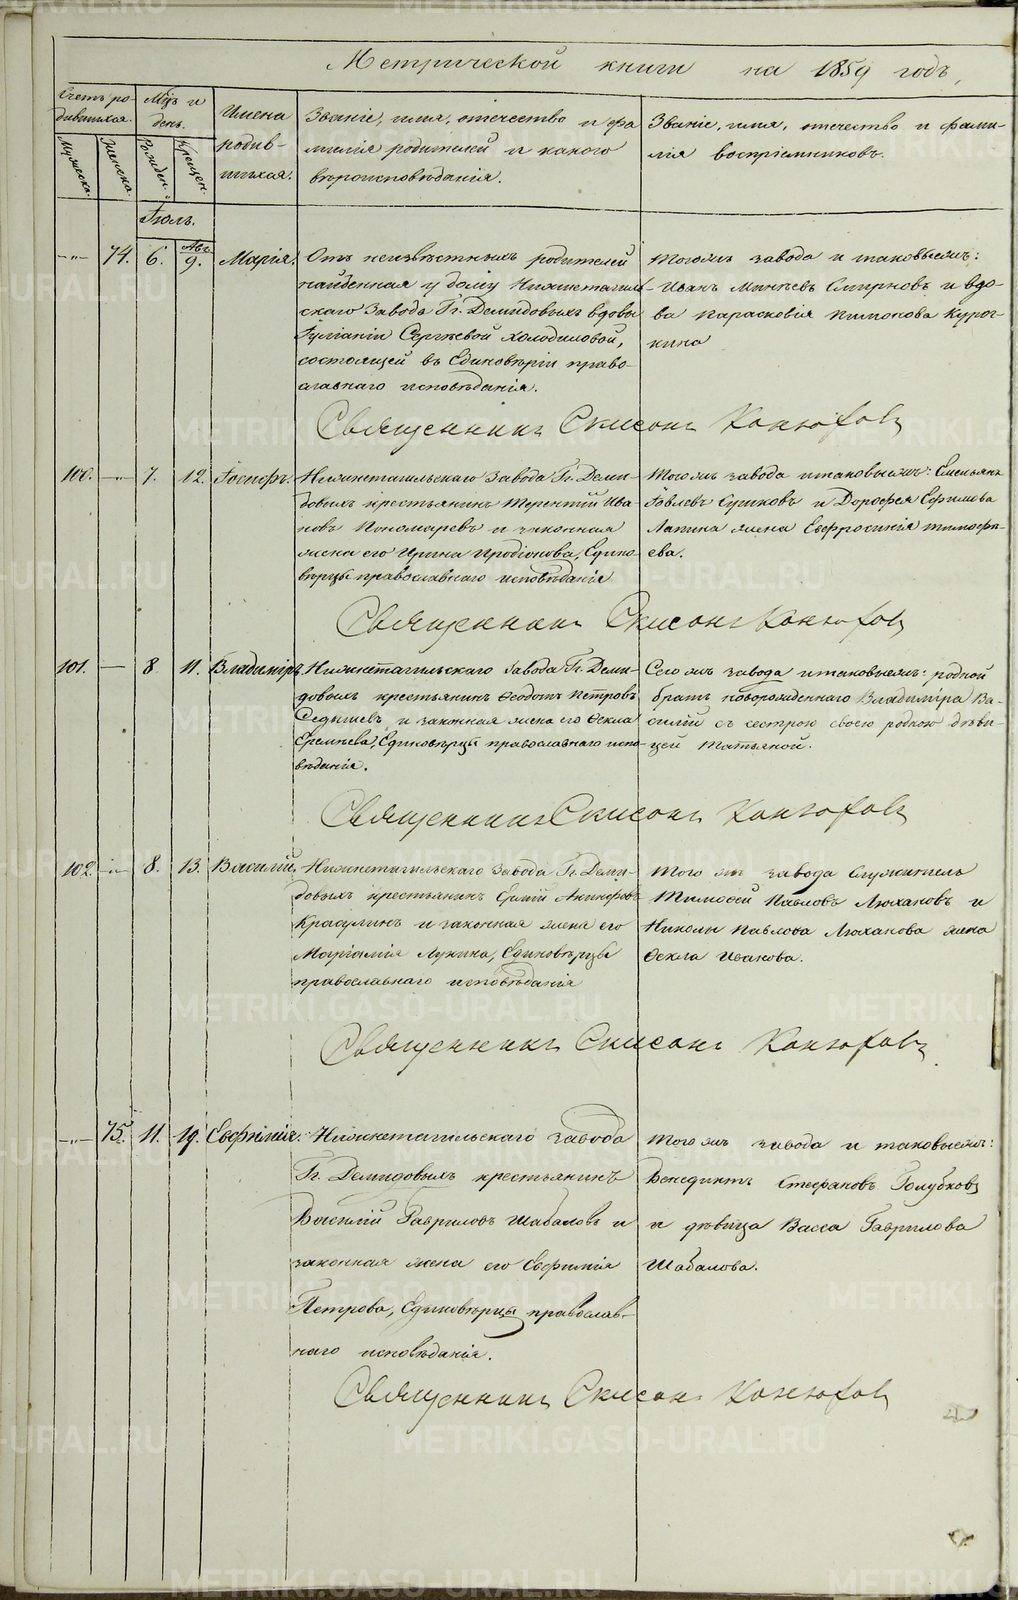 Метрической книги на 1859 годъ,
Счетъ ро-
дившихся.
Мужеска.
Женска.
Мѣс. и
день.
Рожден.
Крещен.
Имена
родив-
шихся.
Званіе, имя, отечество и фа-
милія родителей и какого
вѣроисповѣданія.
Званіе, имя, отечество и фами-
лія воспріемниковъ.
Іюль.
-"- 74. 6. Авг. 9. Марія.
Отъ неизвѣстныхъ родителей
найденная у дому Нижнетагиль-
скаго Завода Гг. Демидовыхъ вдовы
Іуліаніи Сергѣевой Холодиловой,
состоящей въ Единовѣріи право-
славнаго исповѣданія.
Тогожъ завода и таковыежъ:
Иванъ Минѣевъ Смирновъ и вдо-
ва Парасковія Пимонова Куроч-
кина
Священникъ Конюховъ
100. -"- 7. 12. Іосифъ.
Нижнетагильскаго Завода Гг. Деми-
довыхъ крестьянинъ Терентій Ива-
новъ Пономаревъ и законная
жена его Ирина Иродіонова, Едино-
вѣрцы православнаго исповѣданія
Тогожъ завода итаковыежъ: Емельянъ
Іовлевъ Сушковъ и Дорофея Ефимова
Лапина жена Евфросинія Тимофѣ-
ева.
Священникъ Конюховъ
101. — 8 11. Владиміръ
Нижнетагильскаго Завода Гг. Деми-
довыхъ крестьянинъ Ѳеодотъ Петровъ
Седышевъ и законная жена его Ѳекла
Еремѣева, Единовѣрцы православнаго испо-
вѣданія.
Сегожъ завода итаковыежъ: родной
братъ новорожденнаго Владиміра Ва-
силій съ сестрою своею родною дѣви-
цей Татьяной.
Священникъ Конюховъ
102. -"- 8. 13. Василій.
Нижнетагильскаго Завода Гг. Деми-
довыхъ крестьянинъ Акинфовъ
Красулинъ и законная жена его
Маріамія Лукина, Единовѣрцы
православнаго исповѣданія
Того жъ завода Служитель
Тимофей Павловъ Люхановъ и
Николы Павлова Люханова жена
Ѳекла Иванова.
Священникъ Конюховъ
-"- 75. 11. 19. Евфимія.
Нижнетагильскаго завода
Гг. Демидовыхъ крестьянинъ
Василій Гавриловъ Шабаловъ и
законная жена его Евфимія
Петрова, Единовѣрцы православ-
наго исповѣданія.
Тогожъ завода и таковыежъ:
Венедиктъ Стефановъ Голубковъ
и дѣвица Васса Гаврилова
Шабалова.
Священникъ Конюховъ
METRIKI.GASO-URAL.RU